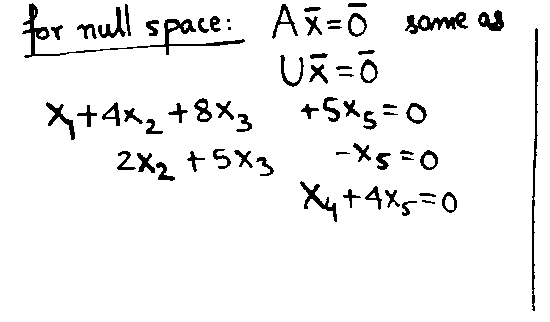 for null space: Ax̄=0̄ same as
Ux̄=0̄
x₁+4x₂+8x₃ +5x₅=0
2x₂+5x₃ -x₅=0
x₄+4x₅=0